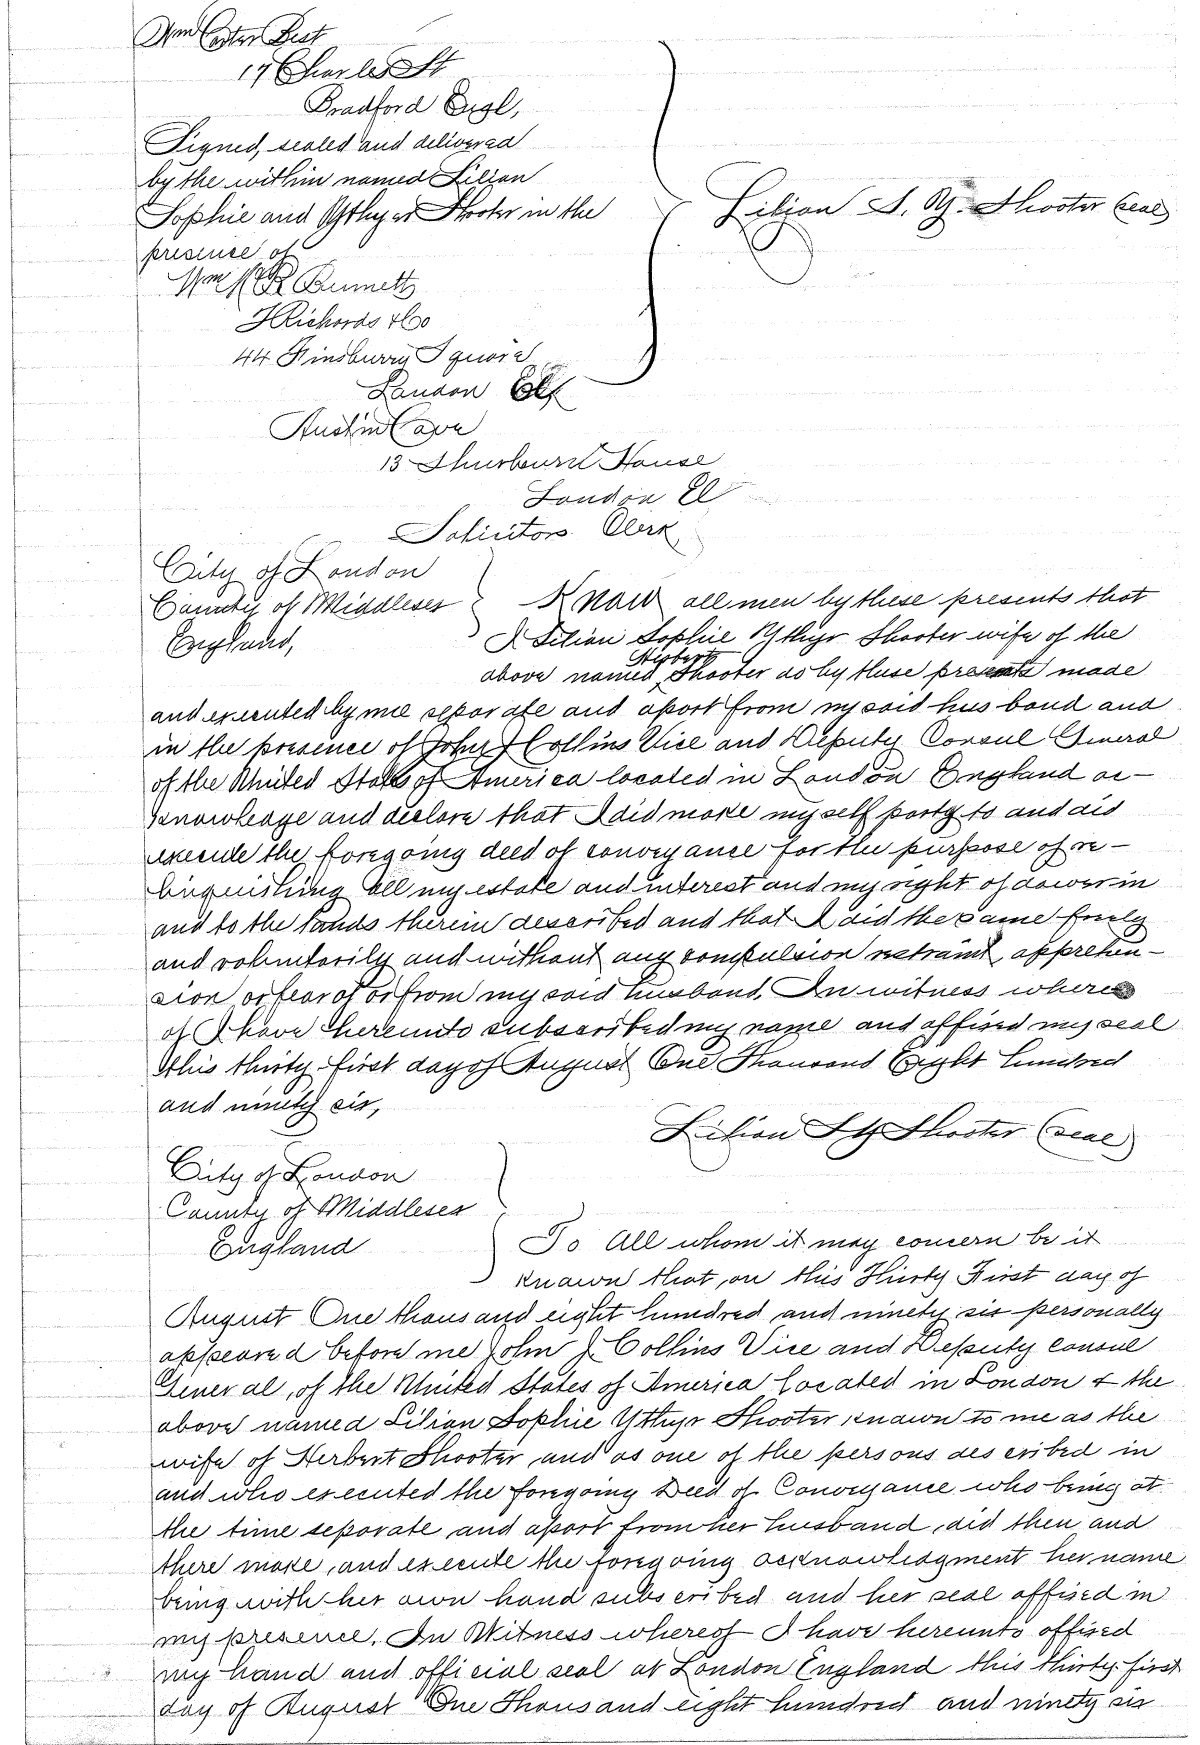 Wm Carter Best
17 Charles St
Bradford Engl,
Signed, sealed and delivered
by the within named Lilian
Sophie and Ythyer Shooter in the
presence of
Lilian S. Y. Shooter (seal)
Wm Burnett
HRichards & Co
44 Finsburry Square
London
Austin Cave
13 Shurbourn House
London El
Solicitors Clerk
City of London
County of Middlesex
England,
Know all men by these presents that
I Lilian Sophie Ythyr Shooter wife of the
above named Herbert Shooter do by these presents made
and executed by me separate and apart from my said husband and
in the presence of John J Collins Vice and Deputy Consul General
of the United States of America located in London England ac-
knowledge and declare that I did make myself party to and did
execute the foregoing deed of conveyance for the purpose of re-
linquishing all my estate and interest and my right of dower in
and to the lands therein described and that I did the same freely
and voluntarily and without any compulsion restraint, apprehen-
sion or fear of or from my said husband. In witness where
of I have hereunto subscribed my name and affixed my seal
this thirty first day of August One Thousand Eight hundred
and ninety six,
Lilian S Y Shooter (seal)
City of London
County of Middlesex
England
To All whom it may concern be it
known that, on this Thirty First day of
August One thousand eight hundred and ninety six personally
appeared before me John J. Collins Vice and Deputy consul
General, of the United States of America located in London & the
above named Lilian Sophie Ythyr Shooter known to me as the
wife of Herbert Shooter and as one of the persons described in
and who executed the foregoing Deed of Conveyance who being at
the time separate and apart from her husband, did then and
there make, and execute the foregoing acknowledgment her name
being with her own hand subscribed and her seal affixed in
my presence. In Witness whereof I have hereunto affixed
my hand and official seal at London England this thirty first
day of August One Thousand eight hundred and ninety six